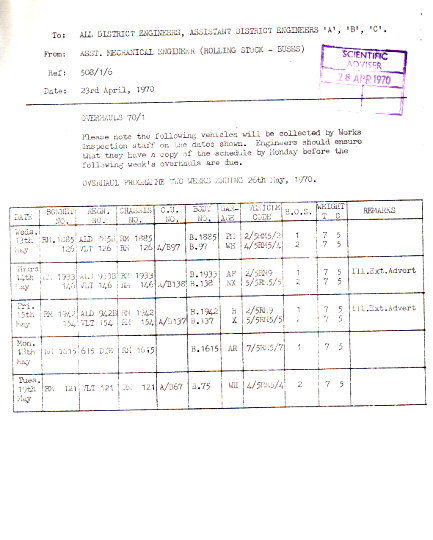 To: ALL DISTRICT ENGINEERS, ASSISTANT DISTRICT ENGINEERS 'A', 'B', 'C'.
From: ASST. MECHANICAL ENGINEER (ROLLING STOCK - BUSES)
SCIENTIFIC
ADVISER
28 APR 1970
Ref: 508/1/6
Date: 23rd April, 1970
OVERHAULS 70/1
Please note the following vehicles will be collected by Works
Inspection staff on the dates shown. Engineers should ensure
that they have a copy of the schedule by Monday before the
following week's overhauls are due.
OVERHAUL PROGRAMME TWO WEEKS ENDING 26th May, 1970.
DATE BONNET NO. REGN. NO. CHASSIS NO. C.U. NO. BODY NO. GAR- AGE VEHICLE CODE B.O.S. WEIGHT T C REMARKS
Weds. 13th May RM 1885 ALD 885B RM 1885 B.1885 2/5RM5/2 1 7 5
126 VLT 126 RM 126 A/B97 B.97 WH 4/5RM5/4 2 7 5
Thurs 14th May RM 1933 ALD 933B RM 1933 B.1933 AF 2/5RM9 1 7 5 Ill.Ext.Advert
146 VLT 146 RM 146 A/B138 B.138 NX 5/5RM5/5 2 7 5
Fri. 15th May RM 1942 ALD 942B RM 1942 B.1942 2/5RM9 1 7 5 Ill.Ext.Advert
154 VLT 154 RM 154 A/B137 B.137 X 5/5RM5/5 2 7 5
Mon. 18th May RM 1615 615 DYE RM 1615 B.1615 AR 7/5RM5/7 1 7 5
Tues. 19th May RM 121 VLT 121 RM 121 A/B67 B.75 WH 4/5RM5/4 2 7 5